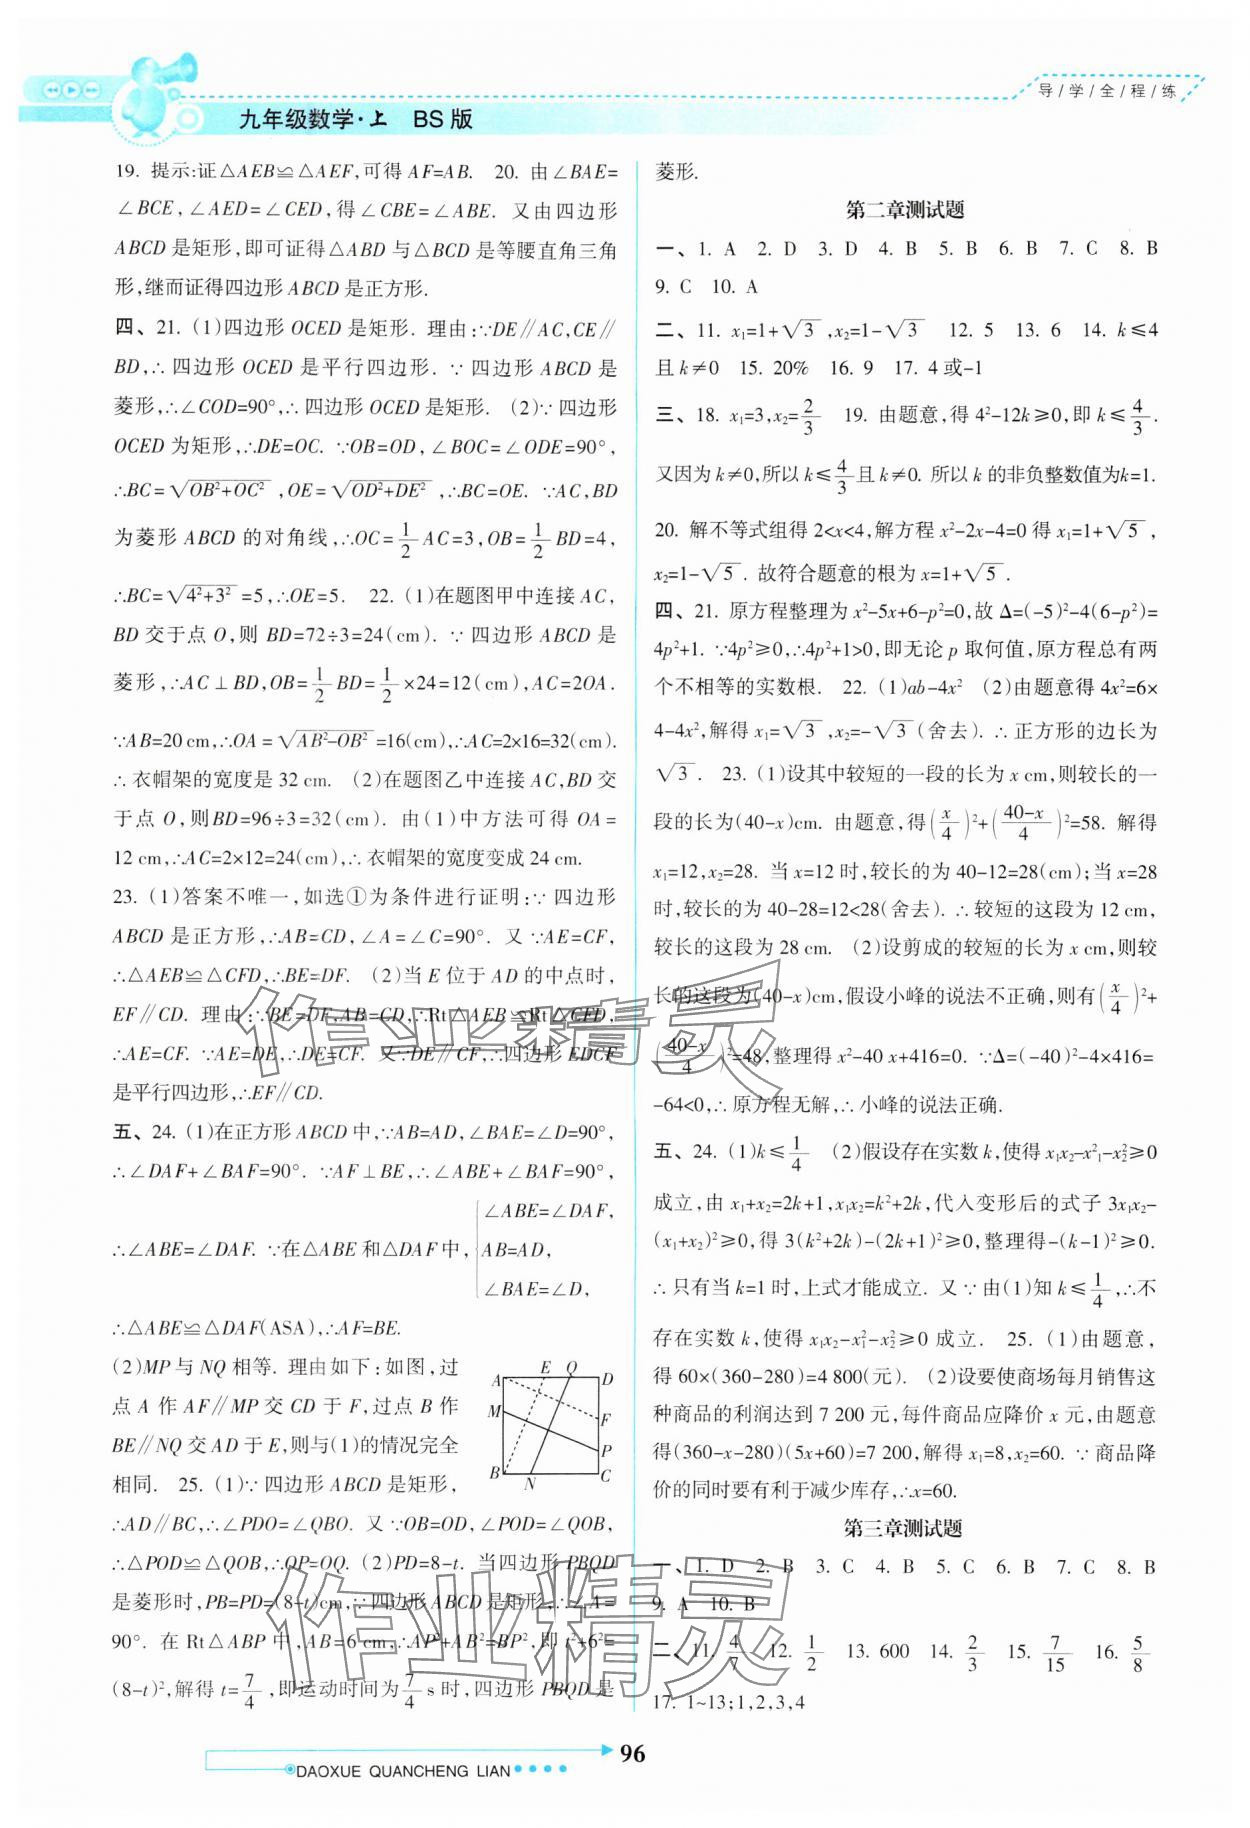 导/学/全/程/练
九年级数学·上 BS版
19. 提示:证△AEB≌△AEF,可得 AF=AB. 20. 由∠BAE=
∠BCE,∠AED=∠CED,得∠CBE=∠ABE. 又由四边形
ABCD是矩形,即可证得△ABD与△BCD是等腰直角三角
形,继而证得四边形ABCD是正方形.
四、21. (1)四边形OCED是矩形. 理由:∵DE∥AC,CE∥
BD,∴四边形OCED是平行四边形. ∵四边形ABCD是
菱形,∴∠COD=90°,∴四边形OCED是矩形. (2)∵四边形
OCED为矩形,∴DE=OC. ∵OB=OD,∠BOC=∠ODE=90°,
∴BC=√(OB²+OC²),OE=√(OD²+DE²),∴BC=OE. ∵AC,BD
为菱形ABCD的对角线,∴OC=1/2 AC=3,OB=1/2 BD=4,
∴BC=√(4²+3²)=5,∴OE=5. 22. (1)在题图甲中连接AC,
BD交于点O,则BD=72÷3=24(cm). ∵四边形ABCD是
菱形,∴AC⊥BD,OB=1/2 BD=1/2×24=12(cm),AC=2OA.
∵AB=20 cm,∴OA=√(AB²-OB²)=16(cm),∴AC=2×16=32(cm).
∴衣帽架的宽度是32 cm. (2)在题图乙中连接AC,BD交
于点O,则BD=96÷3=32(cm). 由(1)中方法可得OA=
12 cm,∴AC=2×12=24(cm),∴衣帽架的宽度变成24 cm.
23. (1)答案不唯一,如选①为条件进行证明:∵四边形
ABCD是正方形,∴AB=CD,∠A=∠C=90°. 又∵AE=CF,
∴△AEB≌△CFD,∴BE=DF. (2)当E位于AD的中点时,
EF∥CD. 理由:∵BE=DF,AB=CD,∴Rt△AEB≌Rt△CFD,
∴AE=CF. ∵AE=DE,∴DE=CF. 又∵DE∥CF,∴四边形EDCF
是平行四边形,∴EF∥CD.
五、24. (1)在正方形ABCD中,∵AB=AD,∠BAE=∠D=90°,
∴∠DAF+∠BAF=90°. ∵AF⊥BE,∴∠ABE+∠BAF=90°,
∠ABE=∠DAF,
∴∠ABE=∠DAF. ∵在△ABE和△DAF中, AB=AD,
∠BAE=∠D,
∴△ABE≌△DAF(ASA),∴AF=BE.
(2)MP与NQ相等. 理由如下:如图,过
点A作AF∥MP交CD于F,过点B作
BE∥NQ交AD于E,则与(1)的情况完全
相同. 25. (1)∵四边形ABCD是矩形,
A E Q D
M F
P
B N C
∴AD∥BC,∴∠PDO=∠QBO. 又∵OB=OD,∠POD=∠QOB,
∴△POD≌△QOB,∴OP=OQ. (2)PD=8-t. 当四边形PBQD
是菱形时,PB=PD=(8-t)cm,∵四边形ABCD是矩形,∴∠A=
90°. 在Rt△ABP中,AB=6 cm,∴AP²+AB²=BP²,即t²+6²=
(8-t)²,解得t=7/4,即运动时间为7/4 s时,四边形PBQD是
菱形.
第二章测试题
一、1. A 2. D 3. D 4. B 5. B 6. B 7. C 8. B
9. C 10. A
二、11. x₁=1+√3,x₂=1-√3 12. 5 13. 6 14. k≤4
且k≠0 15. 20% 16. 9 17. 4或-1
三、18. x₁=3,x₂=2/3 19. 由题意,得4²-12k≥0,即k≤4/3.
又因为k≠0,所以k≤4/3且k≠0. 所以k的非负整数值为k=1.
20. 解不等式组得2<x<4,解方程x²-2x-4=0得x₁=1+√5,
x₂=1-√5. 故符合题意的根为x=1+√5.
四、21. 原方程整理为x²-5x+6-p²=0,故Δ=(-5)²-4(6-p²)=
4p²+1. ∵4p²≥0,∴4p²+1>0,即无论p取何值,原方程总有两
个不相等的实数根. 22. (1)ab-4x² (2)由题意得4x²=6×
4-4x²,解得x₁=√3,x₂=-√3(舍去). ∴正方形的边长为
√3. 23. (1)设其中较短的一段的长为x cm,则较长的一
段的长为(40-x)cm. 由题意,得(x/4)²+((40-x)/4)²=58. 解得
x₁=12,x₂=28. 当x=12时,较长的为40-12=28(cm);当x=28
时,较长的为40-28=12<28(舍去). ∴较短的这段为12 cm,
较长的这段为28 cm. (2)设剪成的较短的长为x cm,则较
长的这段为(40-x)cm,假设小峰的说法不正确,则有(x/4)²+
((40-x)/4)²=48,整理得x²-40x+416=0. ∵Δ=(-40)²-4×416=
-64<0,∴原方程无解,∴小峰的说法正确.
五、24. (1)k≤1/4 (2)假设存在实数k,使得x₁x₂-x²₁-x²₂≥0
成立,由x₁+x₂=2k+1,x₁x₂=k²+2k,代入变形后的式子3x₁x₂-
(x₁+x₂)²≥0,得3(k²+2k)-(2k+1)²≥0,整理得-(k-1)²≥0.
∴只有当k=1时,上式才能成立. 又∵由(1)知k≤1/4,∴不
存在实数k,使得x₁x₂-x₁²-x₂²≥0成立. 25. (1)由题意,
得60×(360-280)=4 800(元). (2)设要使商场每月销售这
种商品的利润达到7 200元,每件商品应降价x元,由题意
得(360-x-280)(5x+60)=7 200,解得x₁=8,x₂=60. ∵商品降
价的同时要有利于减少库存,∴x=60.
第三章测试题
一、1. D 2. B 3. C 4. B 5. C 6. B 7. C 8. B
9. A 10. B
二、11. 4/7 12. 1/2 13. 600 14. 2/3 15. 7/15 16. 5/8
17. 1~13;1,2,3,4
作业精灵
作业精灵
96
DAOXUE QUANCHENG LIAN